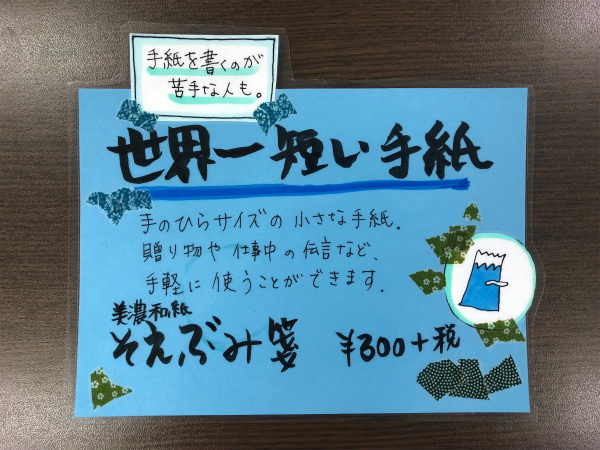 手紙を書くのが
苦手な人も。
世界一短い手紙
手のひらサイズの小さな手紙.
贈り物や仕事中の伝言など、
手軽に使うことができます.
美濃和紙
そえぶみ箋 ¥300+税